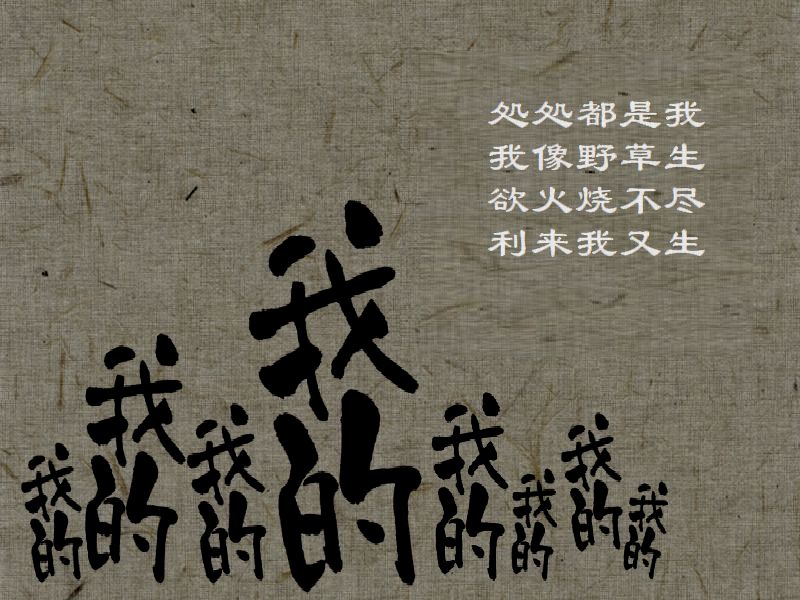 处处都是我
我像野草生
欲火烧不尽
利来我又生
我的
我的
我的
我的
我的
我的
我的
我的